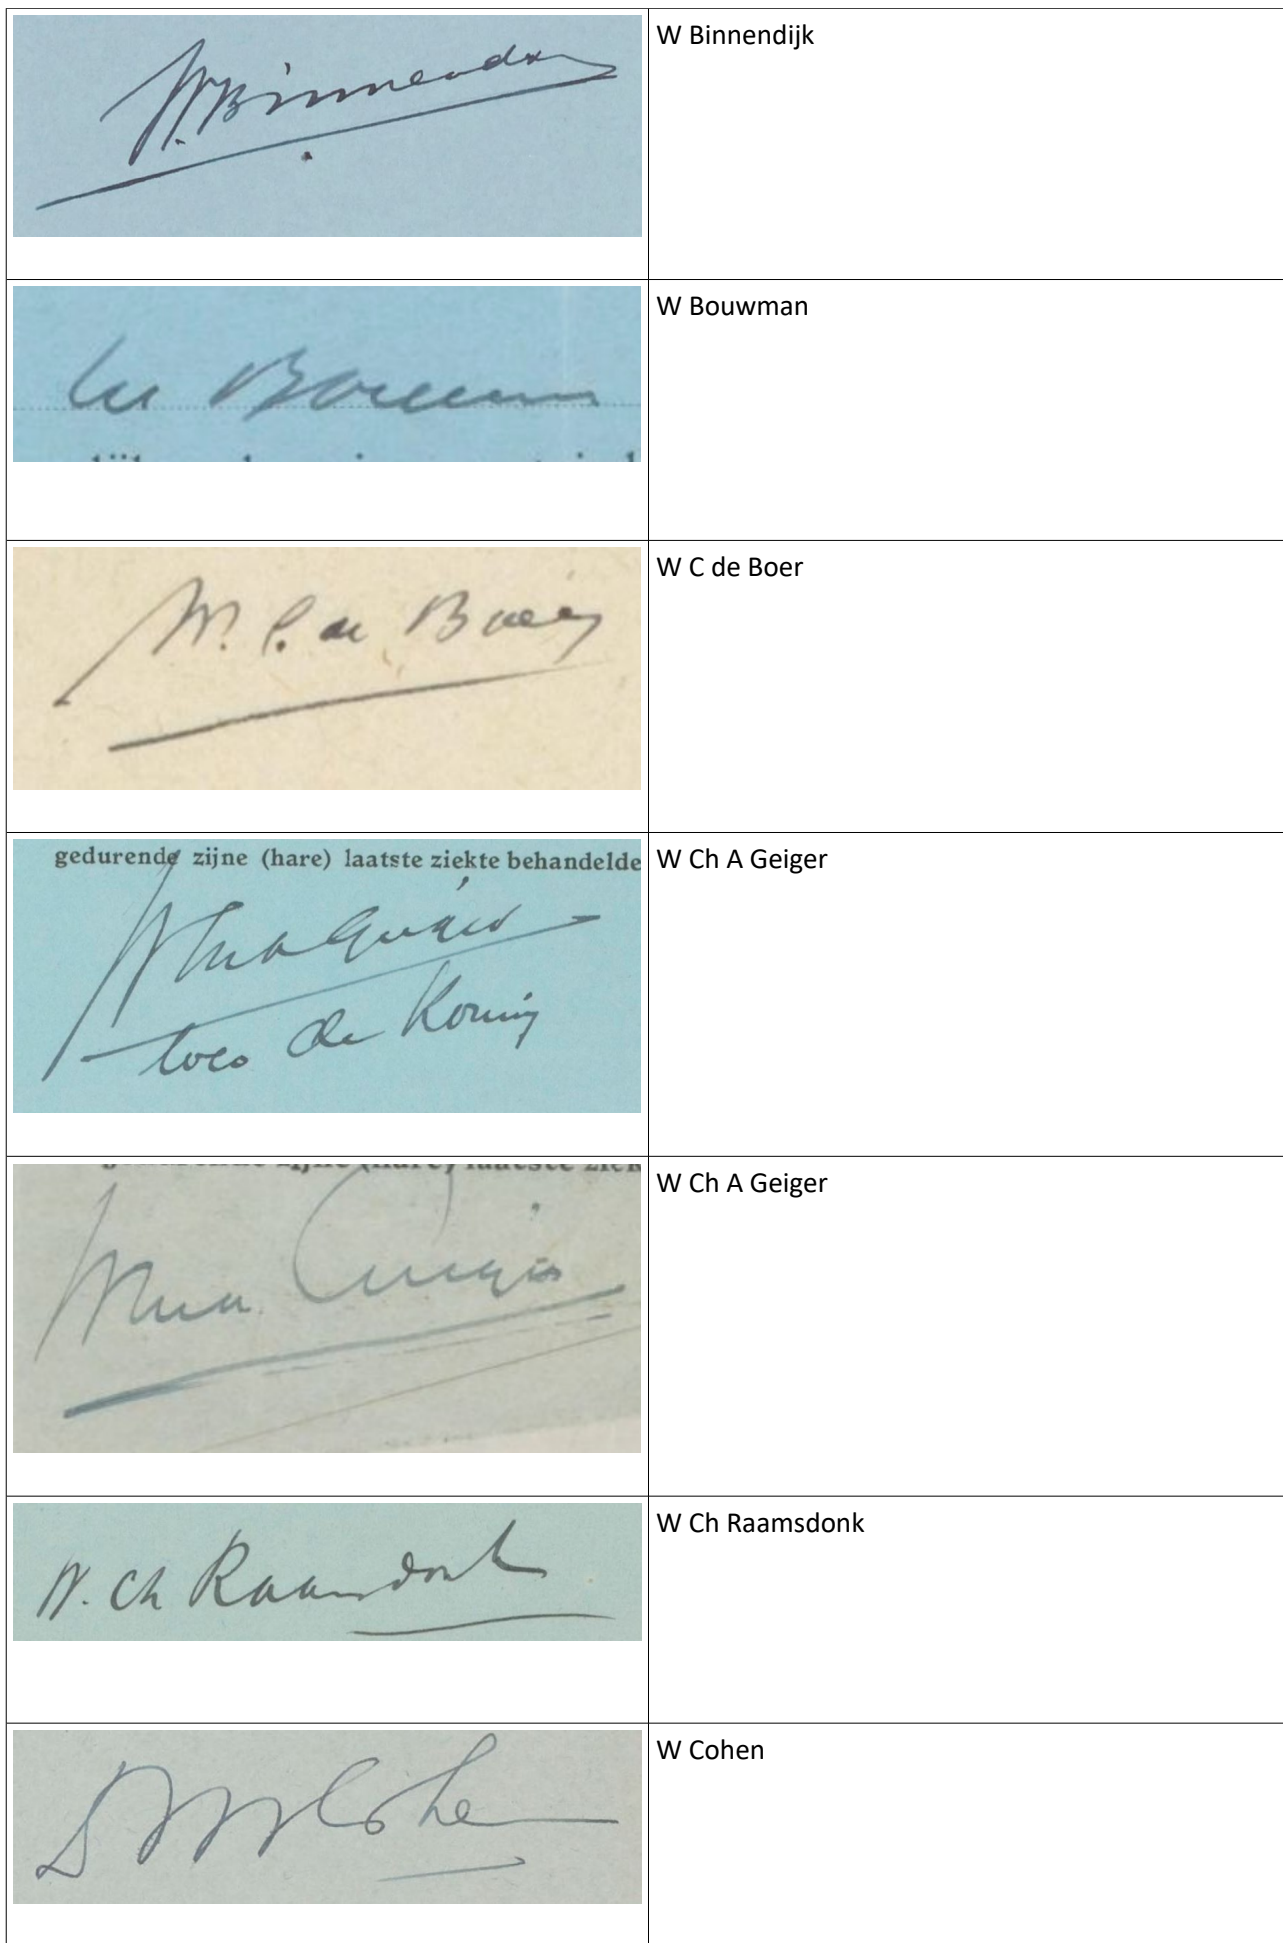 W. Binnendijk
W Binnendijk
W Bouwman
W Bouwman
W. C. de Boer
W C de Boer
gedurende zijne (hare) laatste ziekte behandelde
W Ch A Geiger
loco de Koning
W Ch A Geiger
zijne (hare) laatste ziek
W Ch A Geiger
W Ch A Geiger
W. Ch Raamsdonk
W Ch Raamsdonk
Cohen
W Cohen